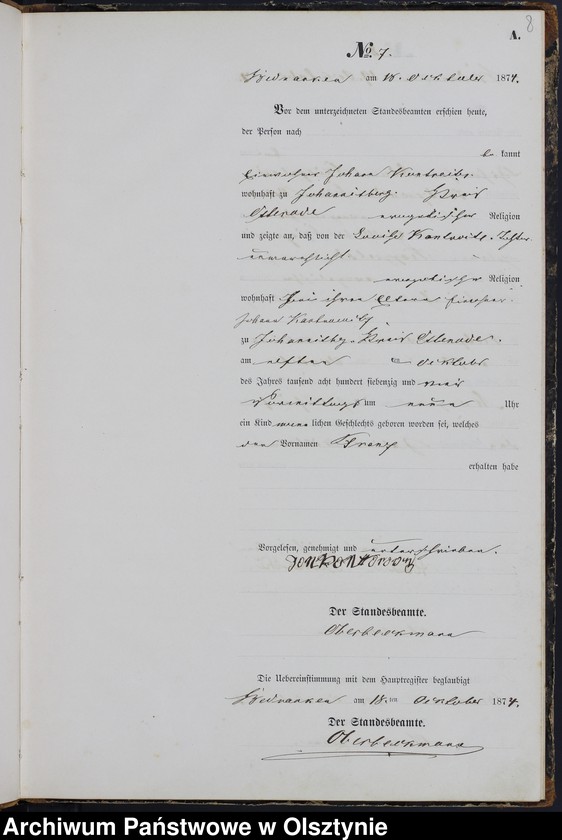 8
A.
No. 7.
am 18. October 1874.
Vor dem unterzeichneten Standesbeamten erschien heute,
der Person nach
be kannt
Einwohner Johann
wohnhaft zu Johannisberg. Kreis
Osterode evangelischer Religion
und zeigte an, daß von der Tochter
unverehelicht
evangelischer Religion
wohnhaft bei ihren Eltern Einwohner
Johann
zu Johannisberg Kreis Osterode.
am elften October
des Jahres tausend acht hundert siebenzig und vier
Vormittags um neun Uhr
ein Kind männ lichen Geschlechts geboren worden sei, welches
den Vornamen Franz
erhalten habe
Vorgelesen, genehmigt und unterschrieben.
Der Standesbeamte.
Oberbeckmann
Die Uebereinstimmung mit dem Hauptregister beglaubigt
am 18. ten October 1874.
Der Standesbeamte.
Oberbeckmann
Archiwum Państwowe w Olsztynie